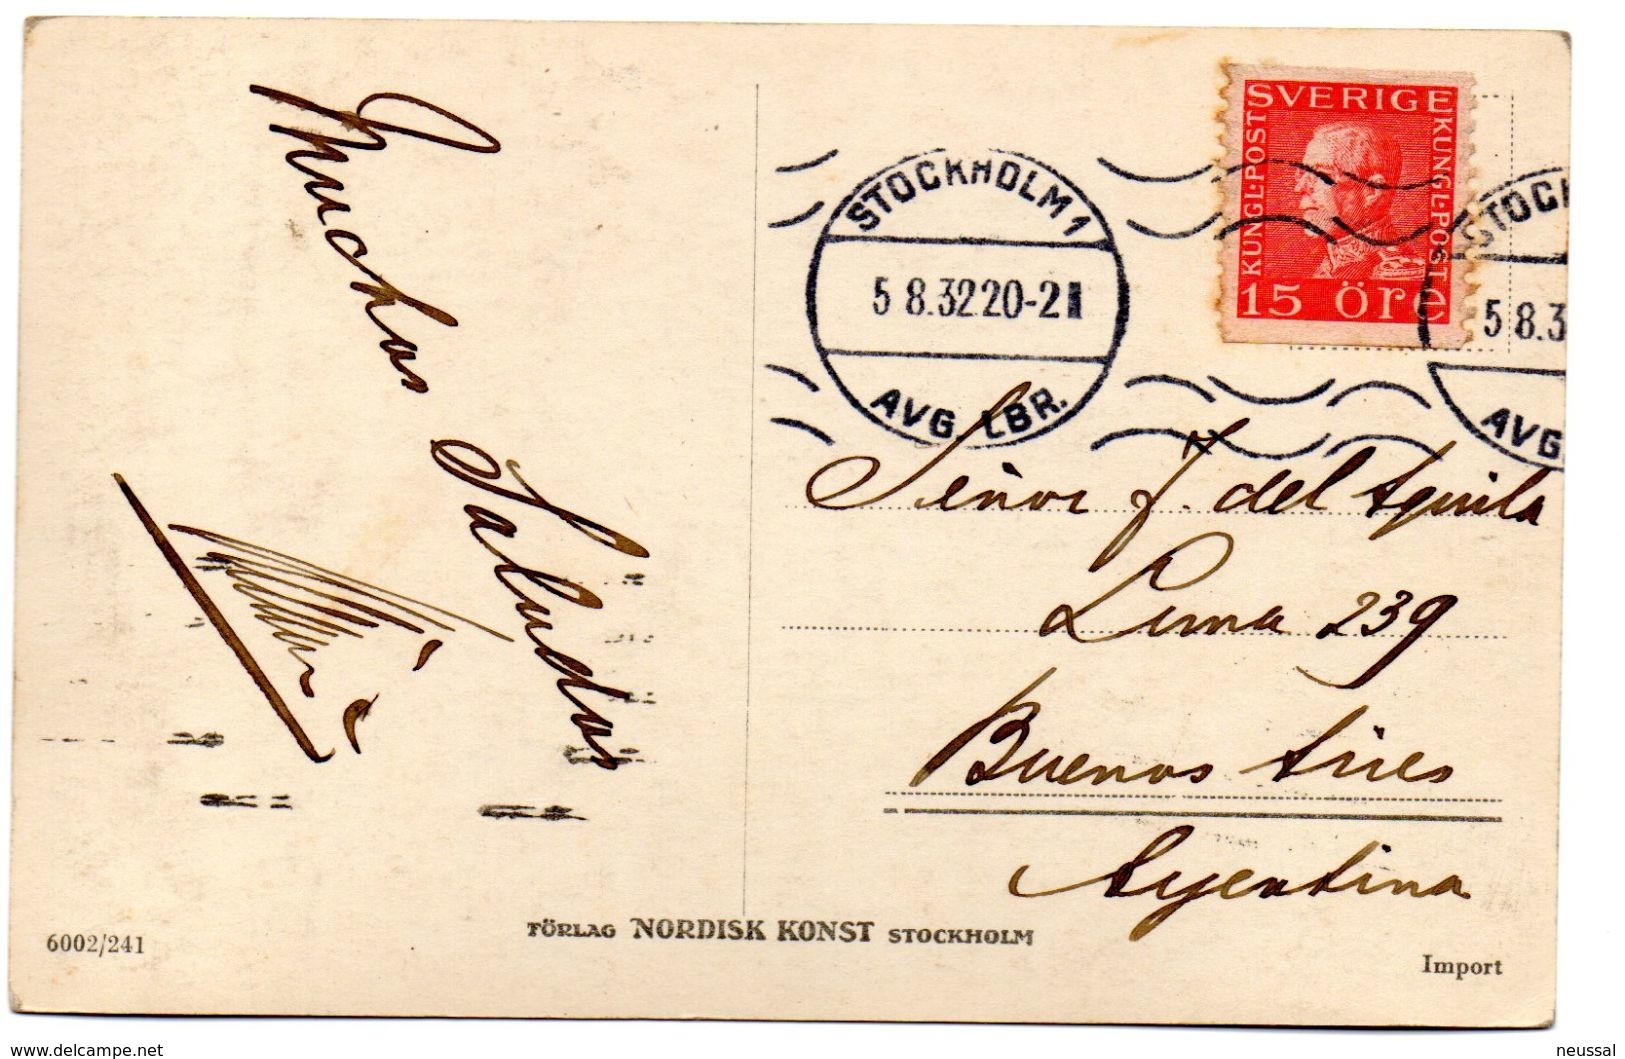 Muchos Saludos
SVERIGE
KUNGL·POST
KUNGL·POST
15 öre
STOCKHOLM 1
5 8.32 20-21
AVG LBR.
STOCK
5 8.3
AVG
Señor J. del Aguila
Lima 239
Buenos Aires
Argentina
6002/241
FÖRLAG NORDISK KONST STOCKHOLM
Import
www.delcampe.net
neussal